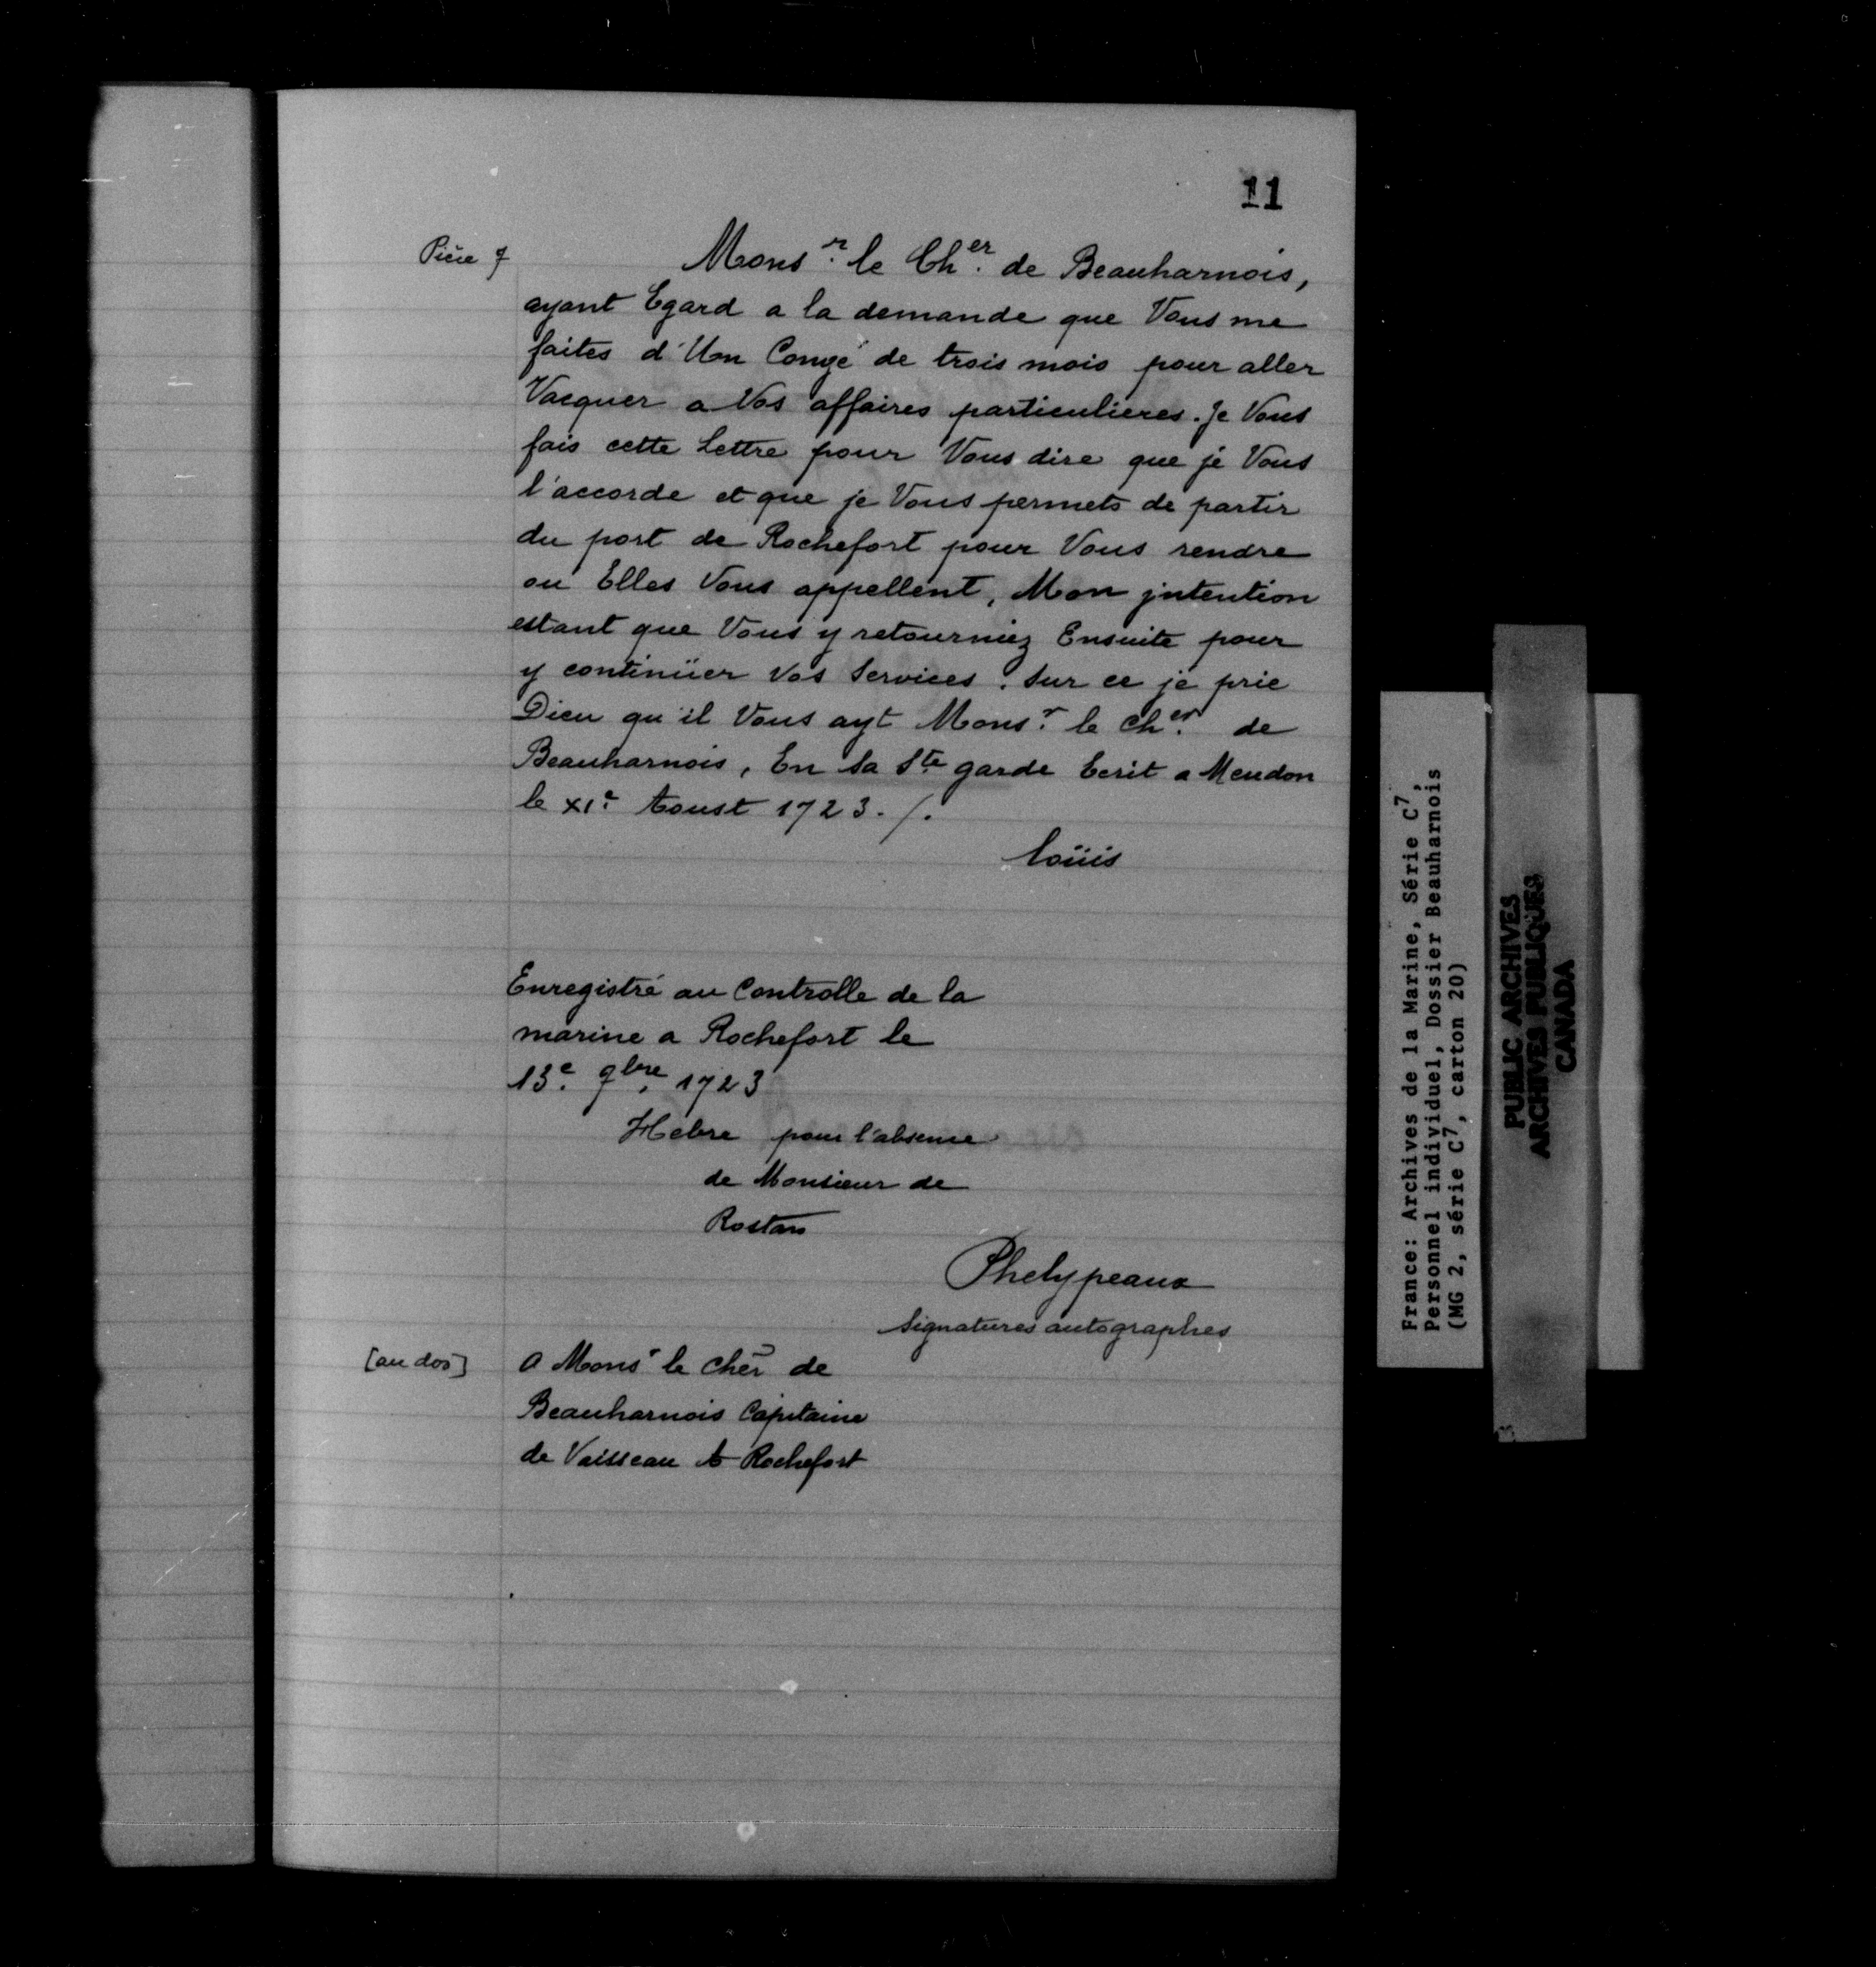 11
Pièce 7
Mons.r le Ch.er de Beauharnois,
ayant Egard a la demande que Vous me
faites d'Un Congé de trois mois pour aller
Vacquer a Vos affaires particulieres. Je Vous
fais cette Lettre pour Vous dire que je Vous
l'accorde et que je Vous permets de partir
du port de Rochefort pour Vous rendre
ou Elles Vous appellent, Mon jntention
estant que Vous y retourniez Ensuite pour
y continüer Vos Services. Sur ce je prie
Dieu qu'il Vous ayt Mons.r le Ch.er de
Beauharnois, En Sa Ste garde Ecrit a Meudon
le XI.e Aoust 1723. /.
Loüis
Enregistré au Controlle de la
marine a Rochefort le
13.e 9bre, 1723
Hebre pour l'absence
de Monsieur de
Rostan
Phelypeaux
Signatures autographes
[au dos] A Monsr le Cher de
Beauharnois Capitaine
de Vaisseau A Rochefort
France: Archives de la Marine, Série C7,
Personnel individuel, Dossier Beauharnois
(MG 2, série C7, carton 20)
PUBLIC ARCHIVES
ARCHIVES PUBLIQUES
CANADA